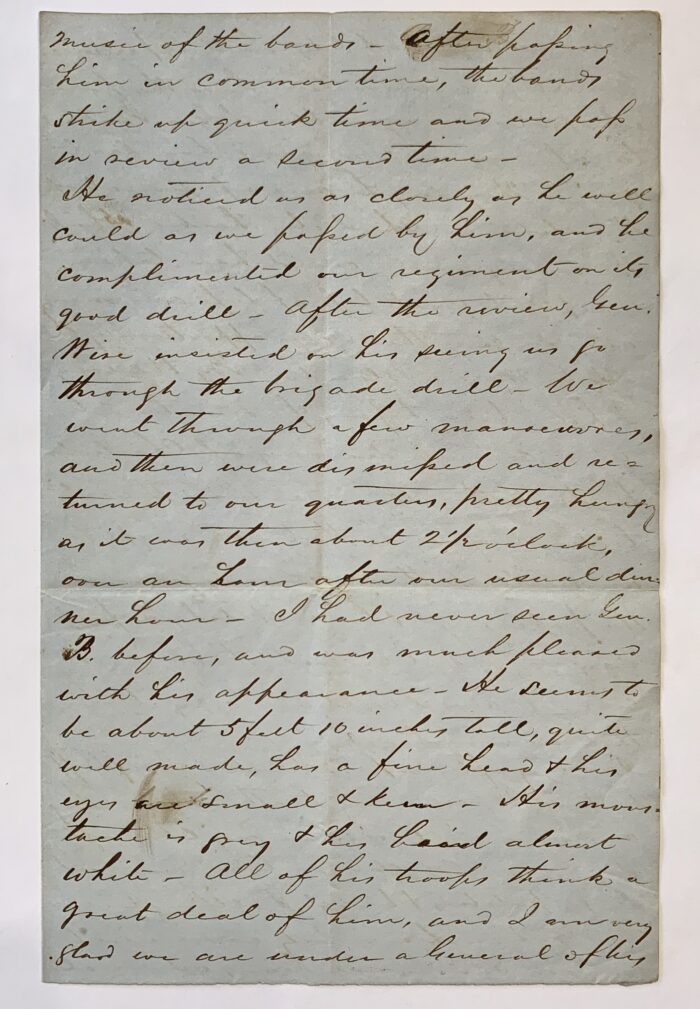 music of the bands - After passing
him in common time, the bands
strike up quick time and we pass
in review a second time -
He noticed us as closely as he well
could as we passed by him, and he
complimented our regiment on its
good drill - After the review, Gen.
Wise insisted on his seeing us go
through the brigade drill - We
went through a few manoeuvres,
and then were dismissed and re=
turned to our quarters, pretty hungry
as it was then about 2 1/2 o'clock,
over an hour after our usual din-
ner hour - I had never seen Gen.
B. before, and was much pleased
with his appearance - He seems to
be about 5 feet 10 inches tall, quite
well made, has a fine head & his
eyes are small & keen - His mous-
tache is grey & his beard almost
white - All of his troops think a
great deal of him, and I am very
glad we are under a General of his